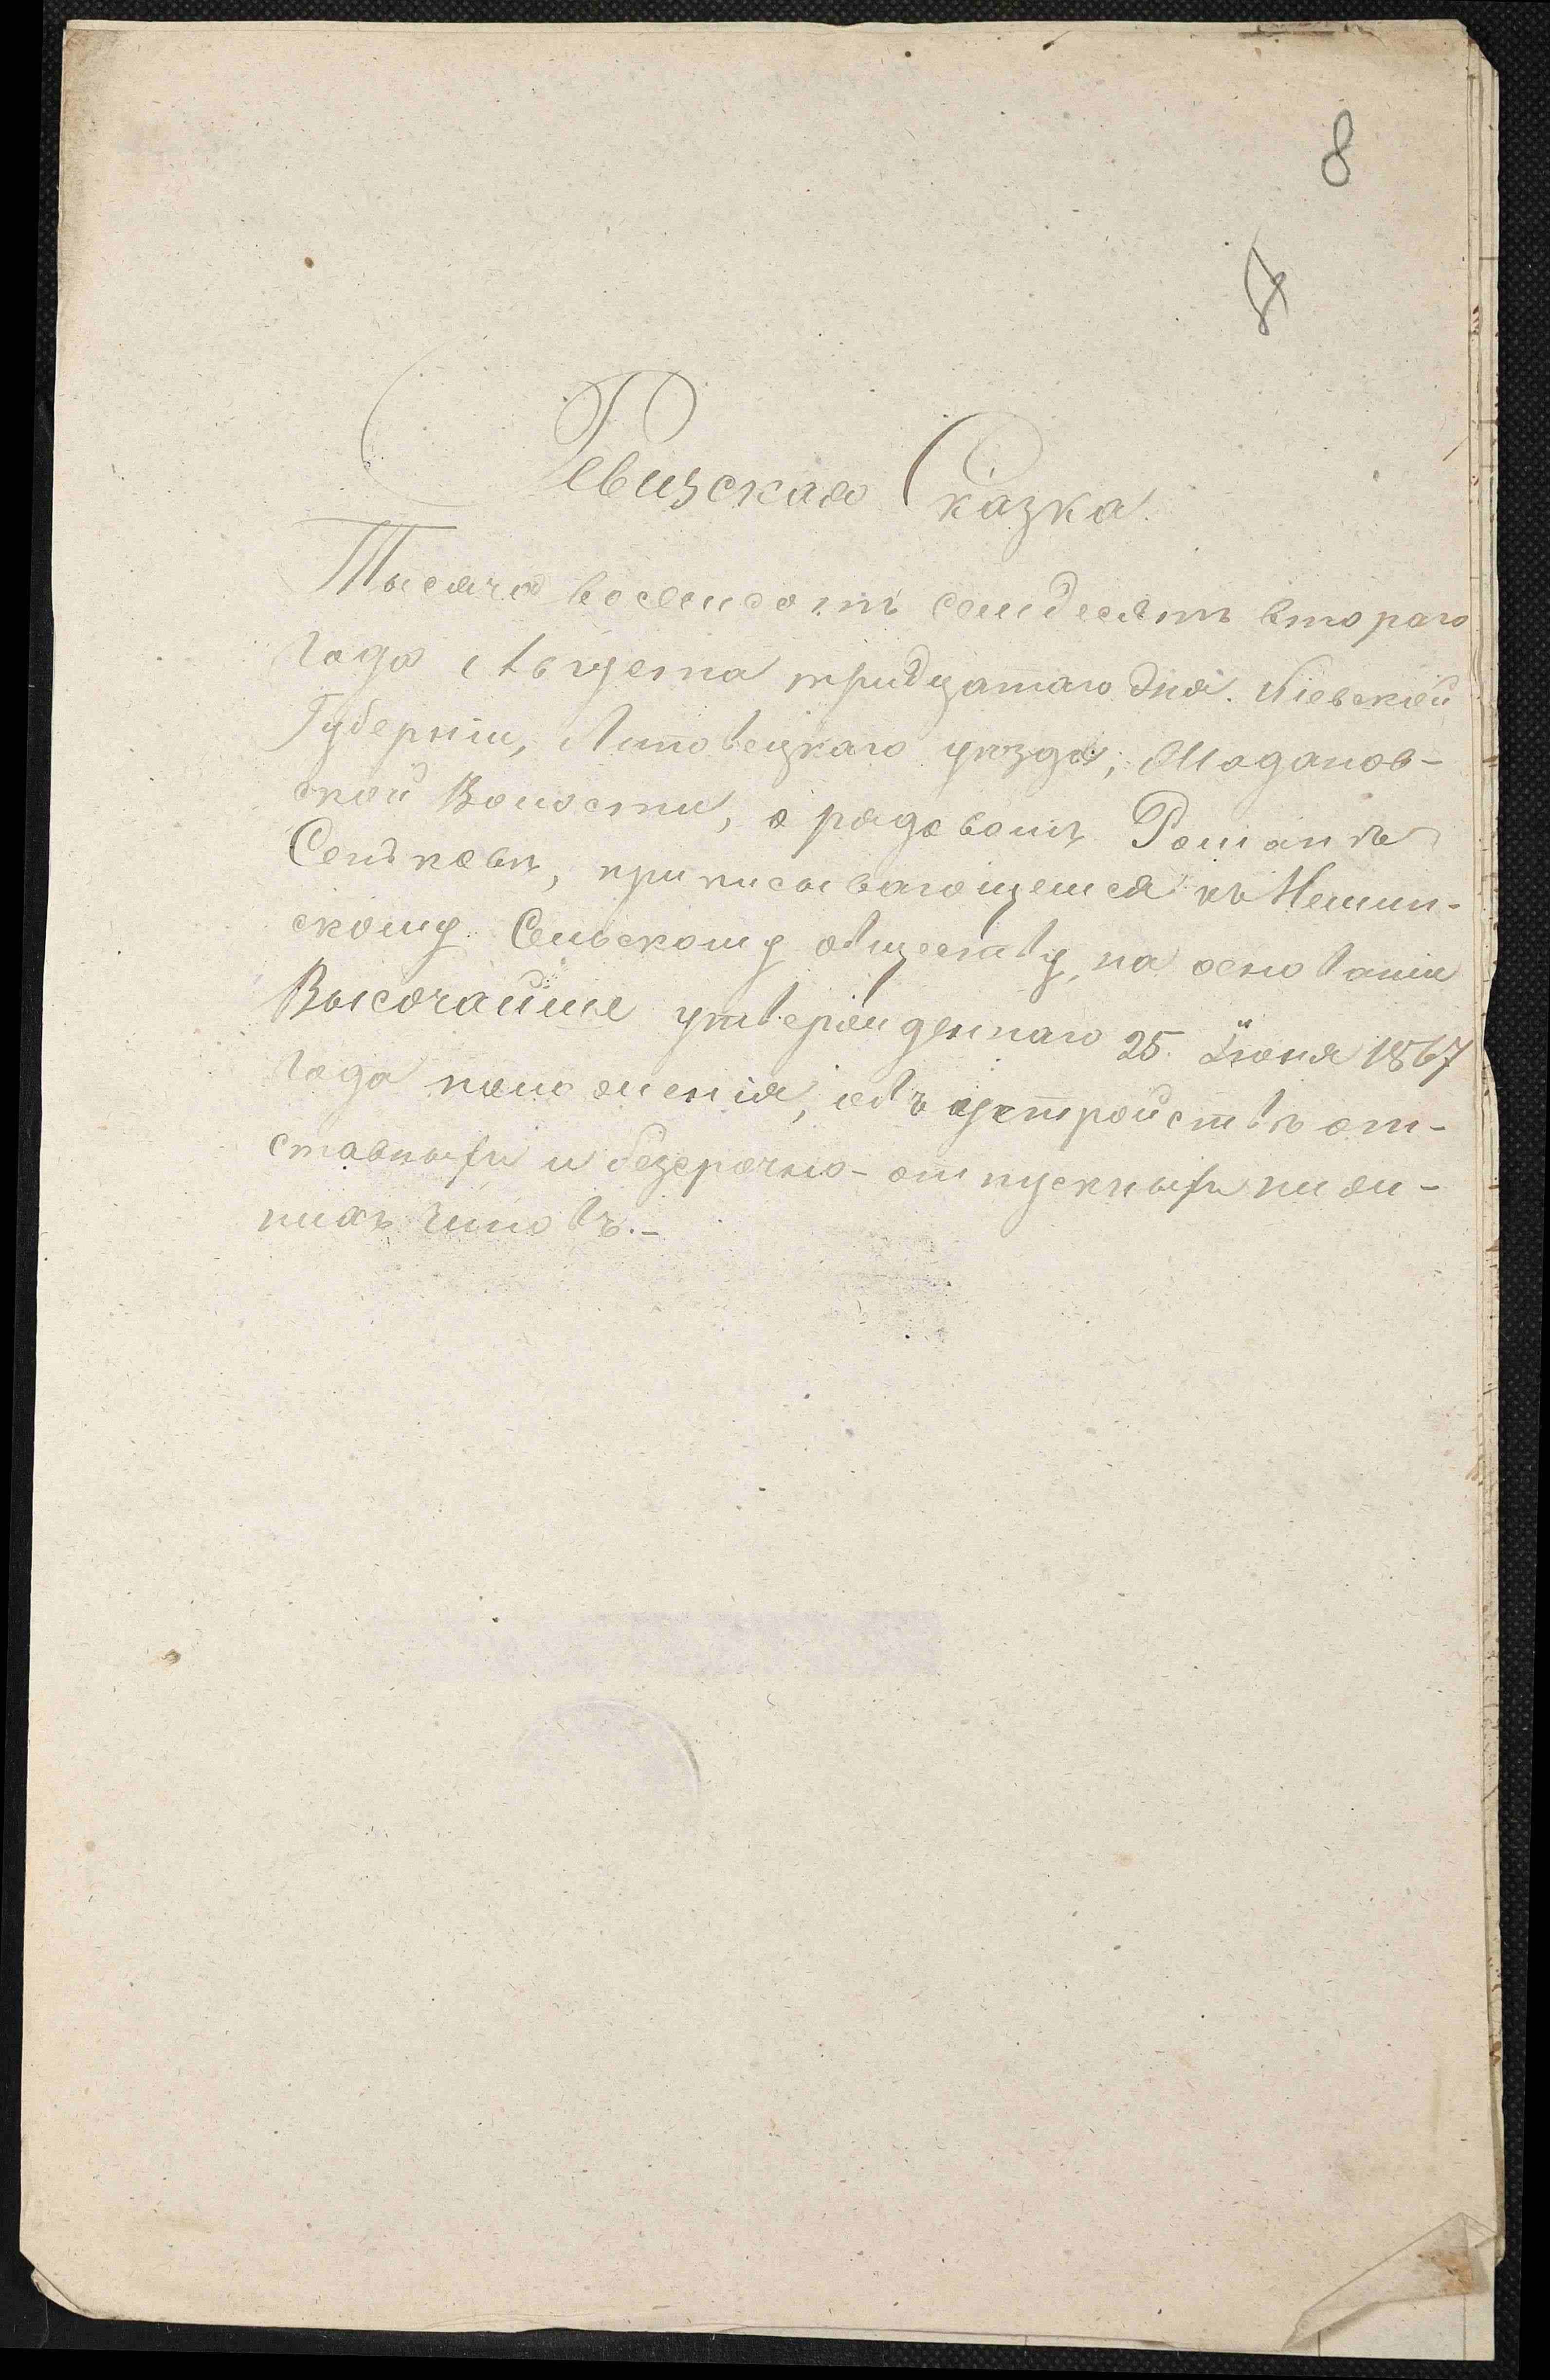 8
Ревизская Сказка.
Тысяча восемсотъ семдесятъ втораго
года Августа тридцатаго дня. Кіевской
Губерніи, Липовецкаго уѣзда, Шадамов-
ской Волости, о рядовомъ Романѣ
Сеньковѣ, приписывающемся къ
скому Сельскому обществу, на основаніи
Высочайше утвержденнаго 25. Іюня 1867
года положенія, объ устройствѣ от-
ставныхъ и безсрочно-отпускныхъ ниж-
нихъ чиновъ.-